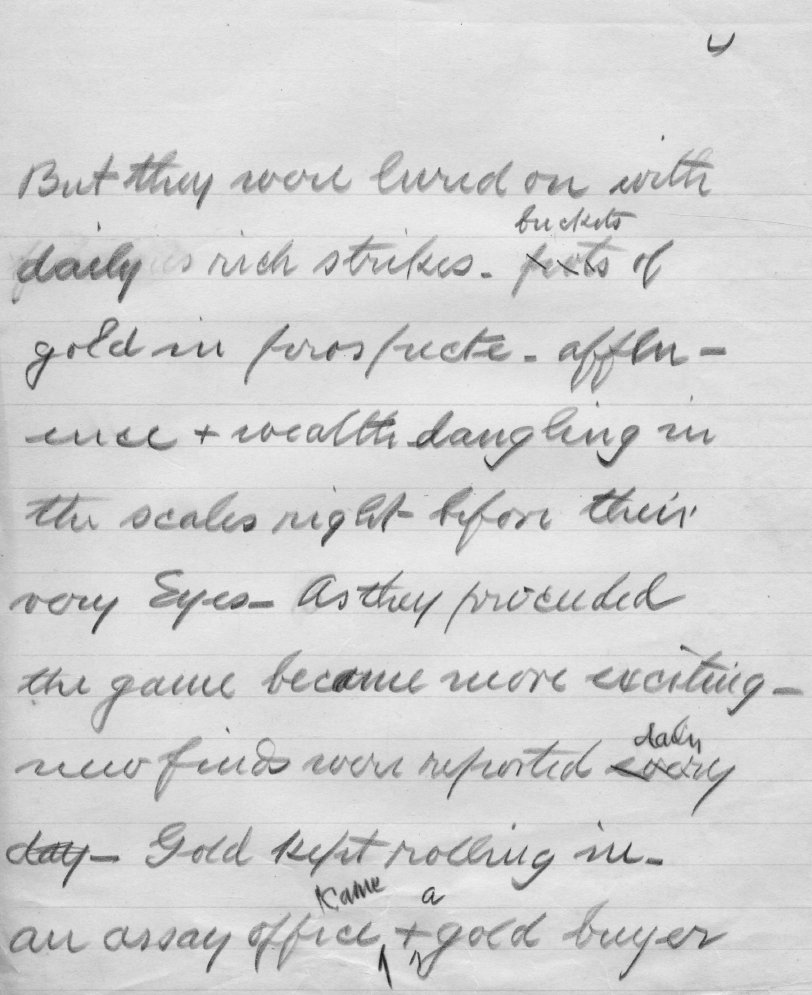 But they were lured on with
buckets
daily rich strikes. pots of
gold in prospects. afflu-
ence + wealth dangling in
the scales right before their
very Eyes- As they proceeded
the game became more exciting-
daily
new finds were reported every
day- Gold kept rolling in-
Kame a
an assay office + gold buyer